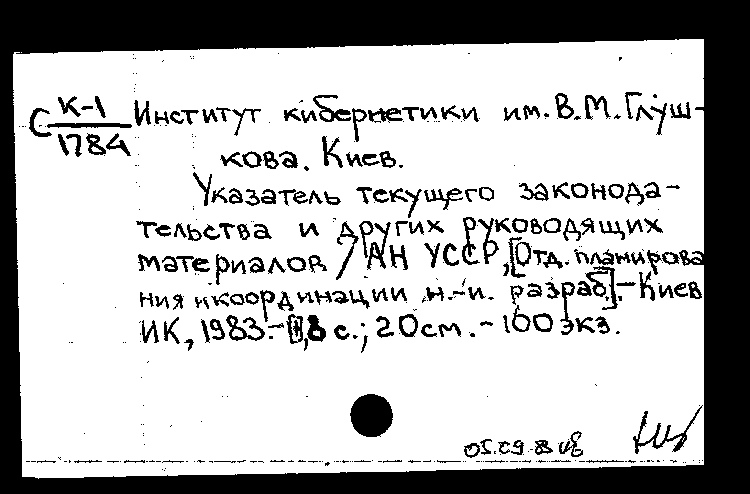 С К-1 Институт кибернетики им. В.М.Глуш-
1784
кова. Киев.
Указатель текущего законода-
тельства и других руководящих
материалов / АН УССР, [Отд. планирова
ния и координации н.-и. разраб.].- Киев
ИК, 1983.- 8 с.; 20 см. - 100 экз.